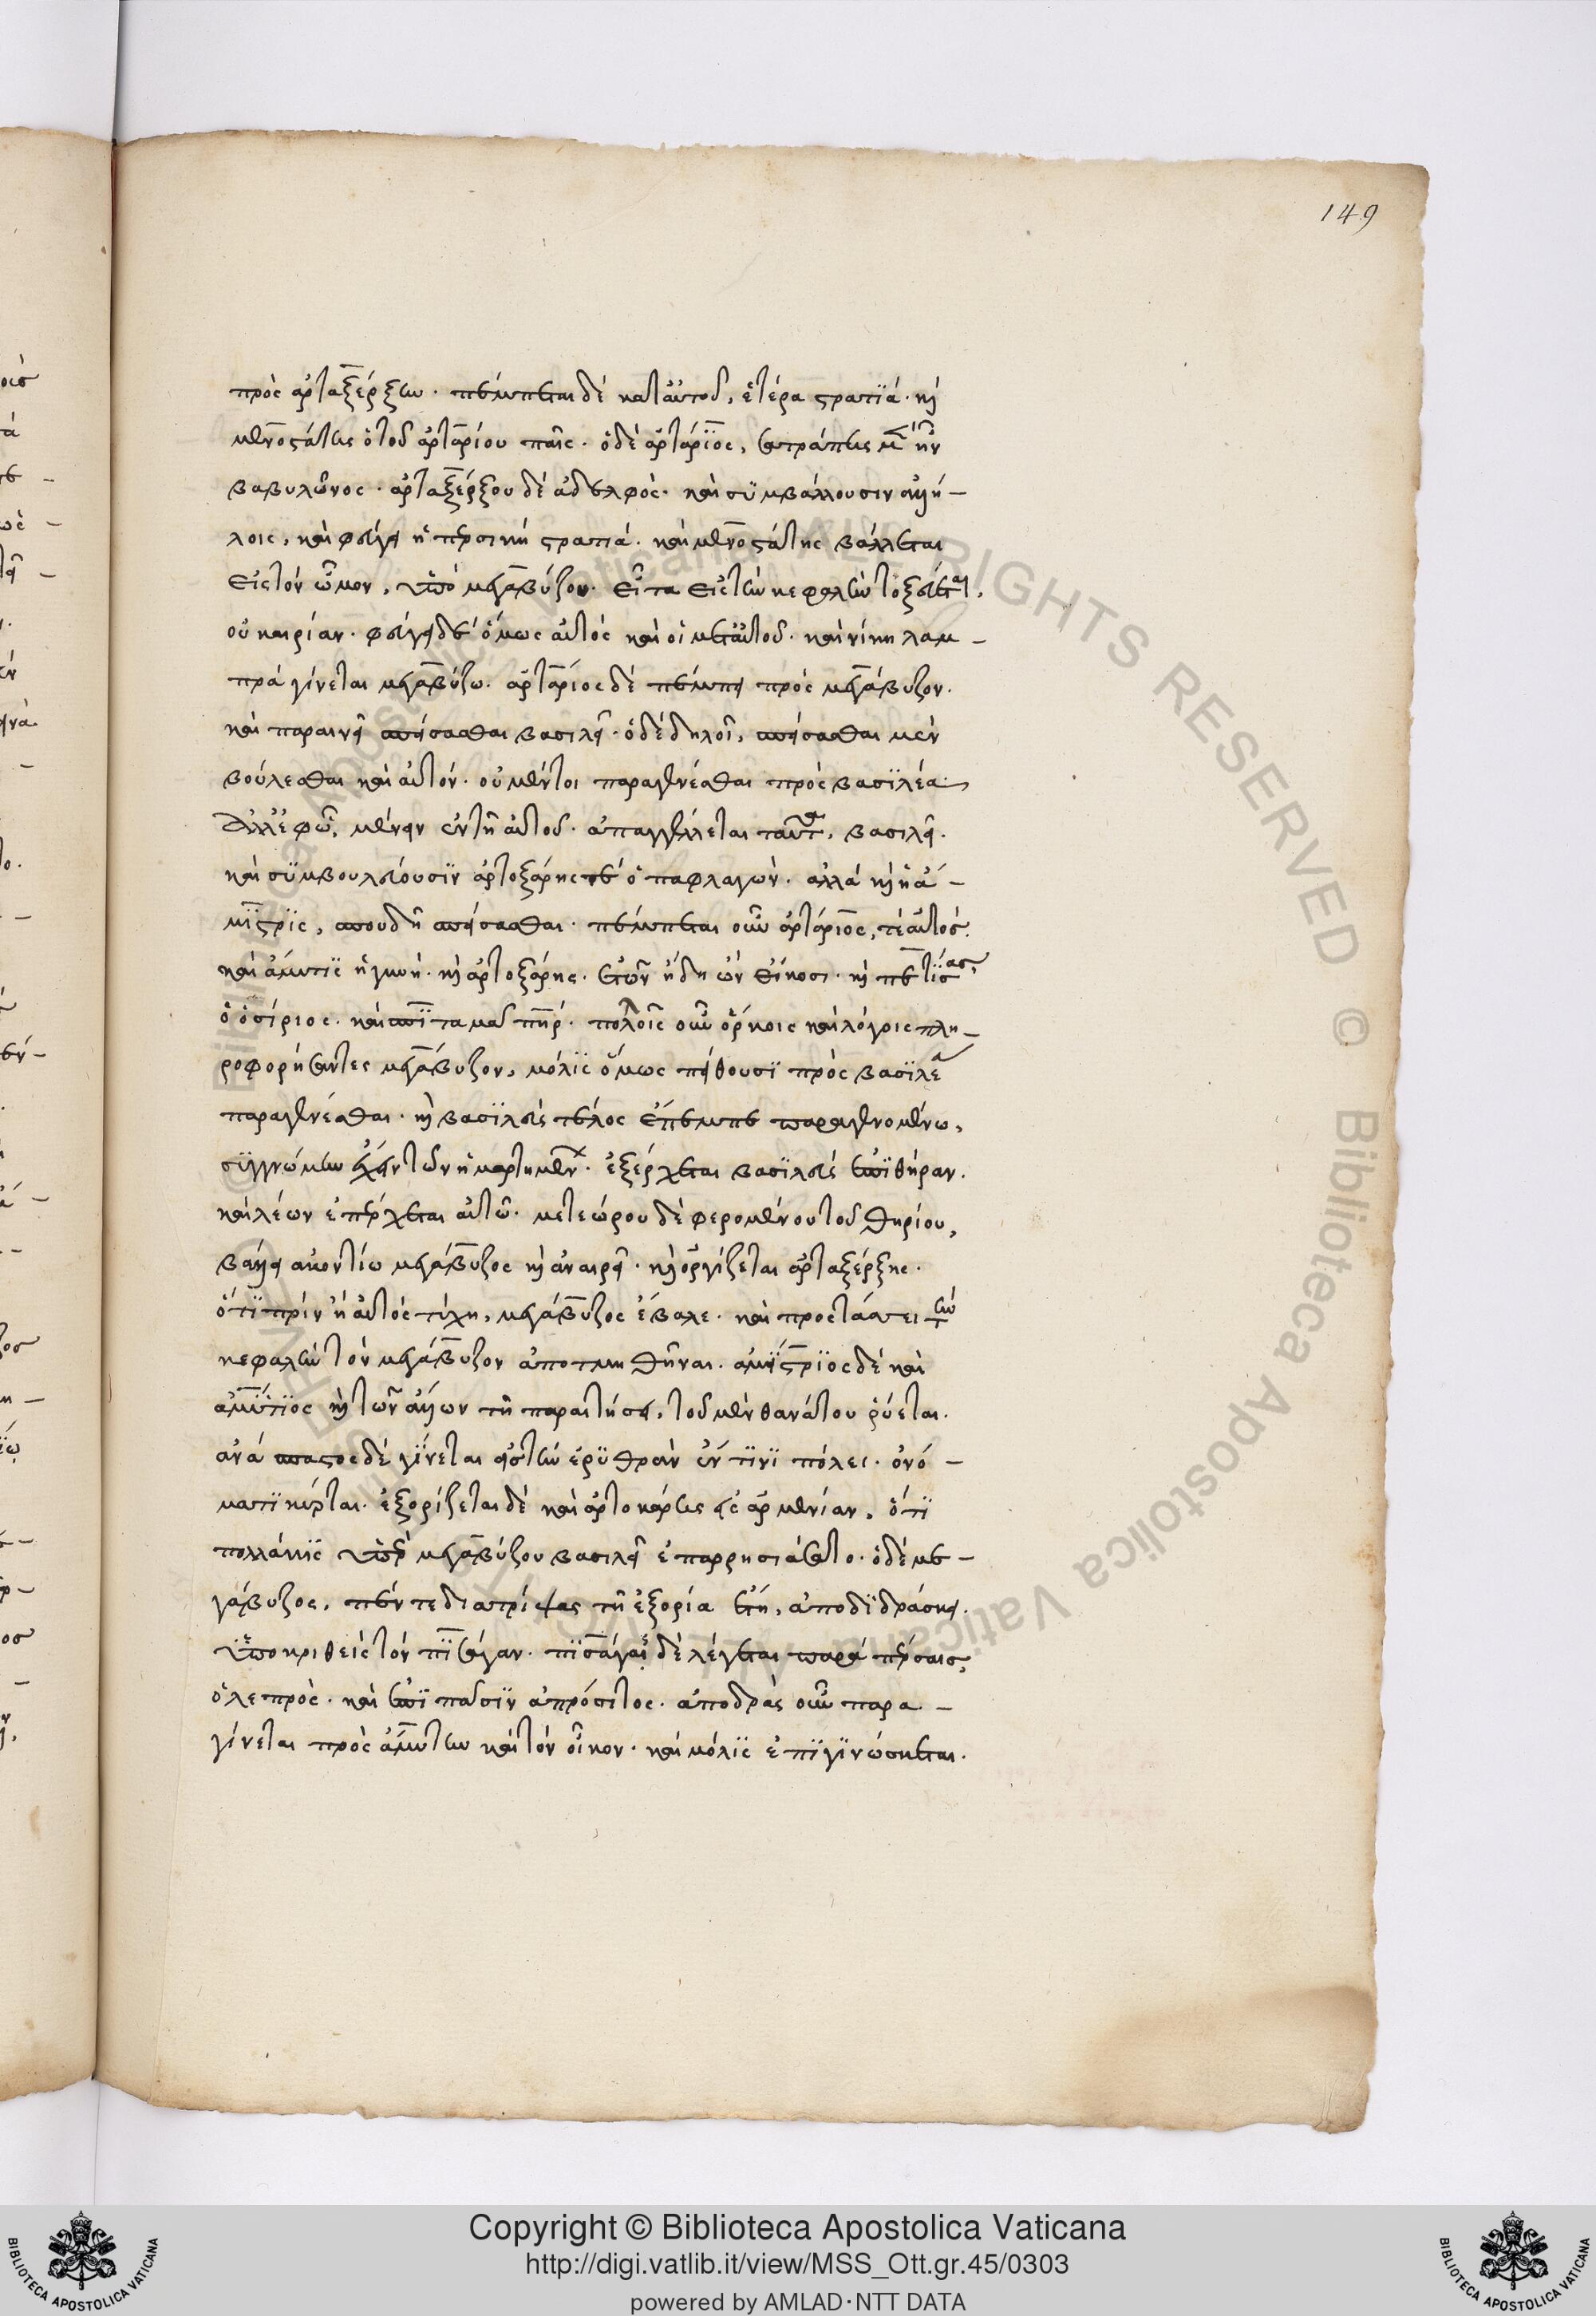 149
πρὸς ἀρταξέρξην. πέμπεται δὲ κατ' αὐτοῦ, ἑτέρα στρατιά. καὶ
μενοστάτης ὁ τοῦ ἀρταρίου παῖς. ὁ δὲ ἀρτάριος, σατράπης μὲν ἦν
βαβυλῶνος. ἀρταξέρξου δὲ ἀδελφός. καὶ συμβάλλουσιν ἀλλή-
λοις, καὶ φεύγει ἡ περσικὴ στρατιά. καὶ μενοστάτης βάλλεται
εἰς τὸν ὦμον, ὑπὸ μεγαβύζου. εἶτα εἰς τὴν κεφαλὴν τοξεύεται,
οὐ καιρίαν. φεύγει δὲ ὅμως αὐτὸς καὶ οἱ μετ' αὐτοῦ. καὶ νίκη λαμ-
πρὰ γίνεται μεγαβύζω. ἀρτάριος δὲ πέμπει πρὸς μεγάβυζον.
καὶ παραινεῖ σπείσασθαι βασιλεῖ. ὁ δὲ δηλοῖ, σπείσασθαι μὲν
βούλεσθαι καὶ αὐτόν. οὐ μέντοι παραγενέσθαι πρὸς βασιλέα.
ἀλλ' ἐφ' ᾧ, μένειν ἐν τῇ αὐτοῦ. ἀπαγγέλλεται ταῦτα, βασιλεῖ.
καὶ συμβουλεύουσιν ἀρτοξάρης τὲ ὁ παφλαγών. ἀλλὰ καὶ ἡ ἀ-
μίστρις, σπουδῇ σπείσασθαι. πέμπεται οὖν ἀρτάριος, τὲ αὐτός.
καὶ ἄμυτις ἡ γυνή. καὶ ἀρτοξάρης. ἐτῶν ἤδη ὢν εἴκοσι. καὶ πετίσας,
ὁ ὀσίριος. καὶ σπίταμα πατήρ. πολλοῖς οὖν ὅρκοις καὶ λόγοις πλη-
ροφορήσαντες μεγάβυζον, μόλις ὅμως πείθουσι πρὸς βασιλέα
παραγενέσθαι. καὶ βασιλεὺς τέλος ἔπεμπε παραγενομένω,
συγγνώμην ἔχειν τῶν ἡμαρτημένων. ἐξέρχεται βασιλεὺς ἐπὶ θήραν.
καὶ λέων ἐπέρχεται αὐτῷ. μετεώρου δὲ φερομένου τοῦ θηρίου,
βάλλει ἀκοντίω μεγάβυζος καὶ ἀναιρεῖ. καὶ ὀργίζεται ἀρταξέρξης.
ὅτι πρὶν ἢ αὐτὸς τύχη, μεγάβυζος ἔβαλε. καὶ προστάσσει τὴν
κεφαλὴν τὸν μεγάβυζον ἀποτμηθῆναι. ἀμίστριος δὲ καὶ
ἀμύτιος καὶ τῶν ἄλλων τῇ παραιτήσει, τοῦ μὲν θανάτου ῥύεται.
ἀνάσπαστος δὲ γίνεται εἰς τὴν ἐρυθρὰν ἔν τινι πόλει. ὀνό-
ματι κύρται. ἐξορίζεται δὲ καὶ ἀρτοξάρης εἰς ἀρμενίαν, ὅτι
πολλάκις ὑπὲρ μεγαβύζου βασιλεῖ ἐπαρρησιάσατο. ὁ δὲ με-
γάβυζος, πέντε διατρίψας τῇ ἐξορία ἔτη, ἀποδιδράσκει.
ὑποκριθεὶς τὸν πισάγαν. πισάγας δὲ λέγεται παρὰ πέρσαις,
ὁ λεπρός. καὶ ἔστι πᾶσιν ἀπρόσιτος. ἀποδρὰς οὖν παρα-
γίνεται πρὸς ἄμυτιν καὶ τὸν οἶκον. καὶ μόλις ἐπιγινώσκεται.
Copyright © Biblioteca Apostolica Vaticana
http://digi.vatlib.it/view/MSS_Ott.gr.45/0303
powered by AMLAD·NTT DATA